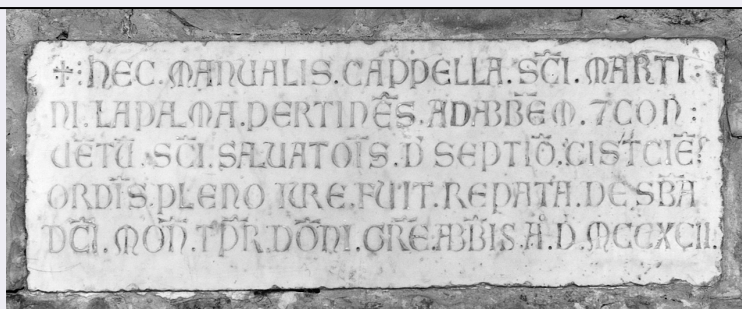 ✠:HEC.MANUALIS.CAPPELLA.SC̄I.MARTI:
NI.LAPALMA.PERTINĒS.ADABBĒM.7CON̄:
UĒTŪ.SC̄I.SALUATOR̄IS.D̄ SEPTIŌ.CIST̄CIĒ
ORDĪS.PLENO IURE.FUIT.REPATA.DE.SB̄A
DC̄I.MON̄.T̄P̄R.DŌNI.GR̄E.AB̄B̄IS.A.D.MCCXCII.